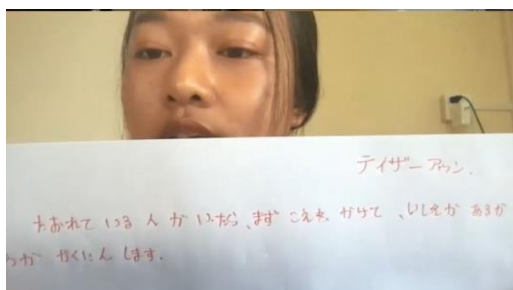 テイザーアウン.
たおれて いる 人 が いたら、まず こえを かけて、いしきが あるか
うか かくにん します.